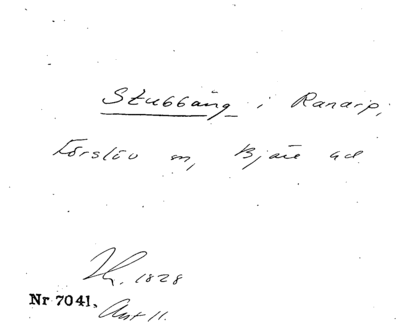 Stubbäng i Ranarp,
Förslöv sn, Bjäre hd
1828
Nr 7041, Akt 11.